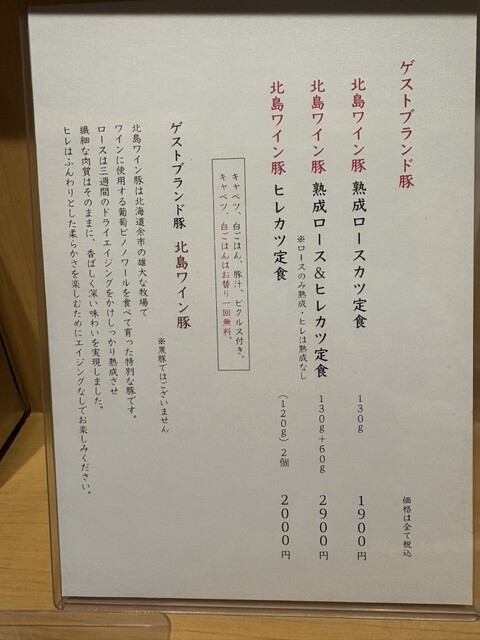 ゲストブランド豚
価格は全て税込
北島ワイン豚 熟成ロースカツ定食 130g 1900円
北島ワイン豚 熟成ロース&ヒレカツ定食 130g+60g 2900円
※ロースのみ熟成・ヒレは熟成なし
北島ワイン豚 ヒレカツ定食 (120g)2個 2000円
キャベツ、白ごはん、豚汁、ピクルス付き。
キャベツ、白ごはんはお替り一回無料。
ゲストブランド豚 北島ワイン豚
※黒豚ではございません
北島ワイン豚は北海道余市の雄大な牧場で
ワインに使用する葡萄ピノノワールを食べて育った特別な豚です。
ロースは三週間のドライエイジングをかけしっかり熟成させ
繊細な肉質はそのままに、香ばしく深い味わいを実現しました。
ヒレはふんわりとした柔らかさを楽しむためにエイジングなしでお楽しみください。